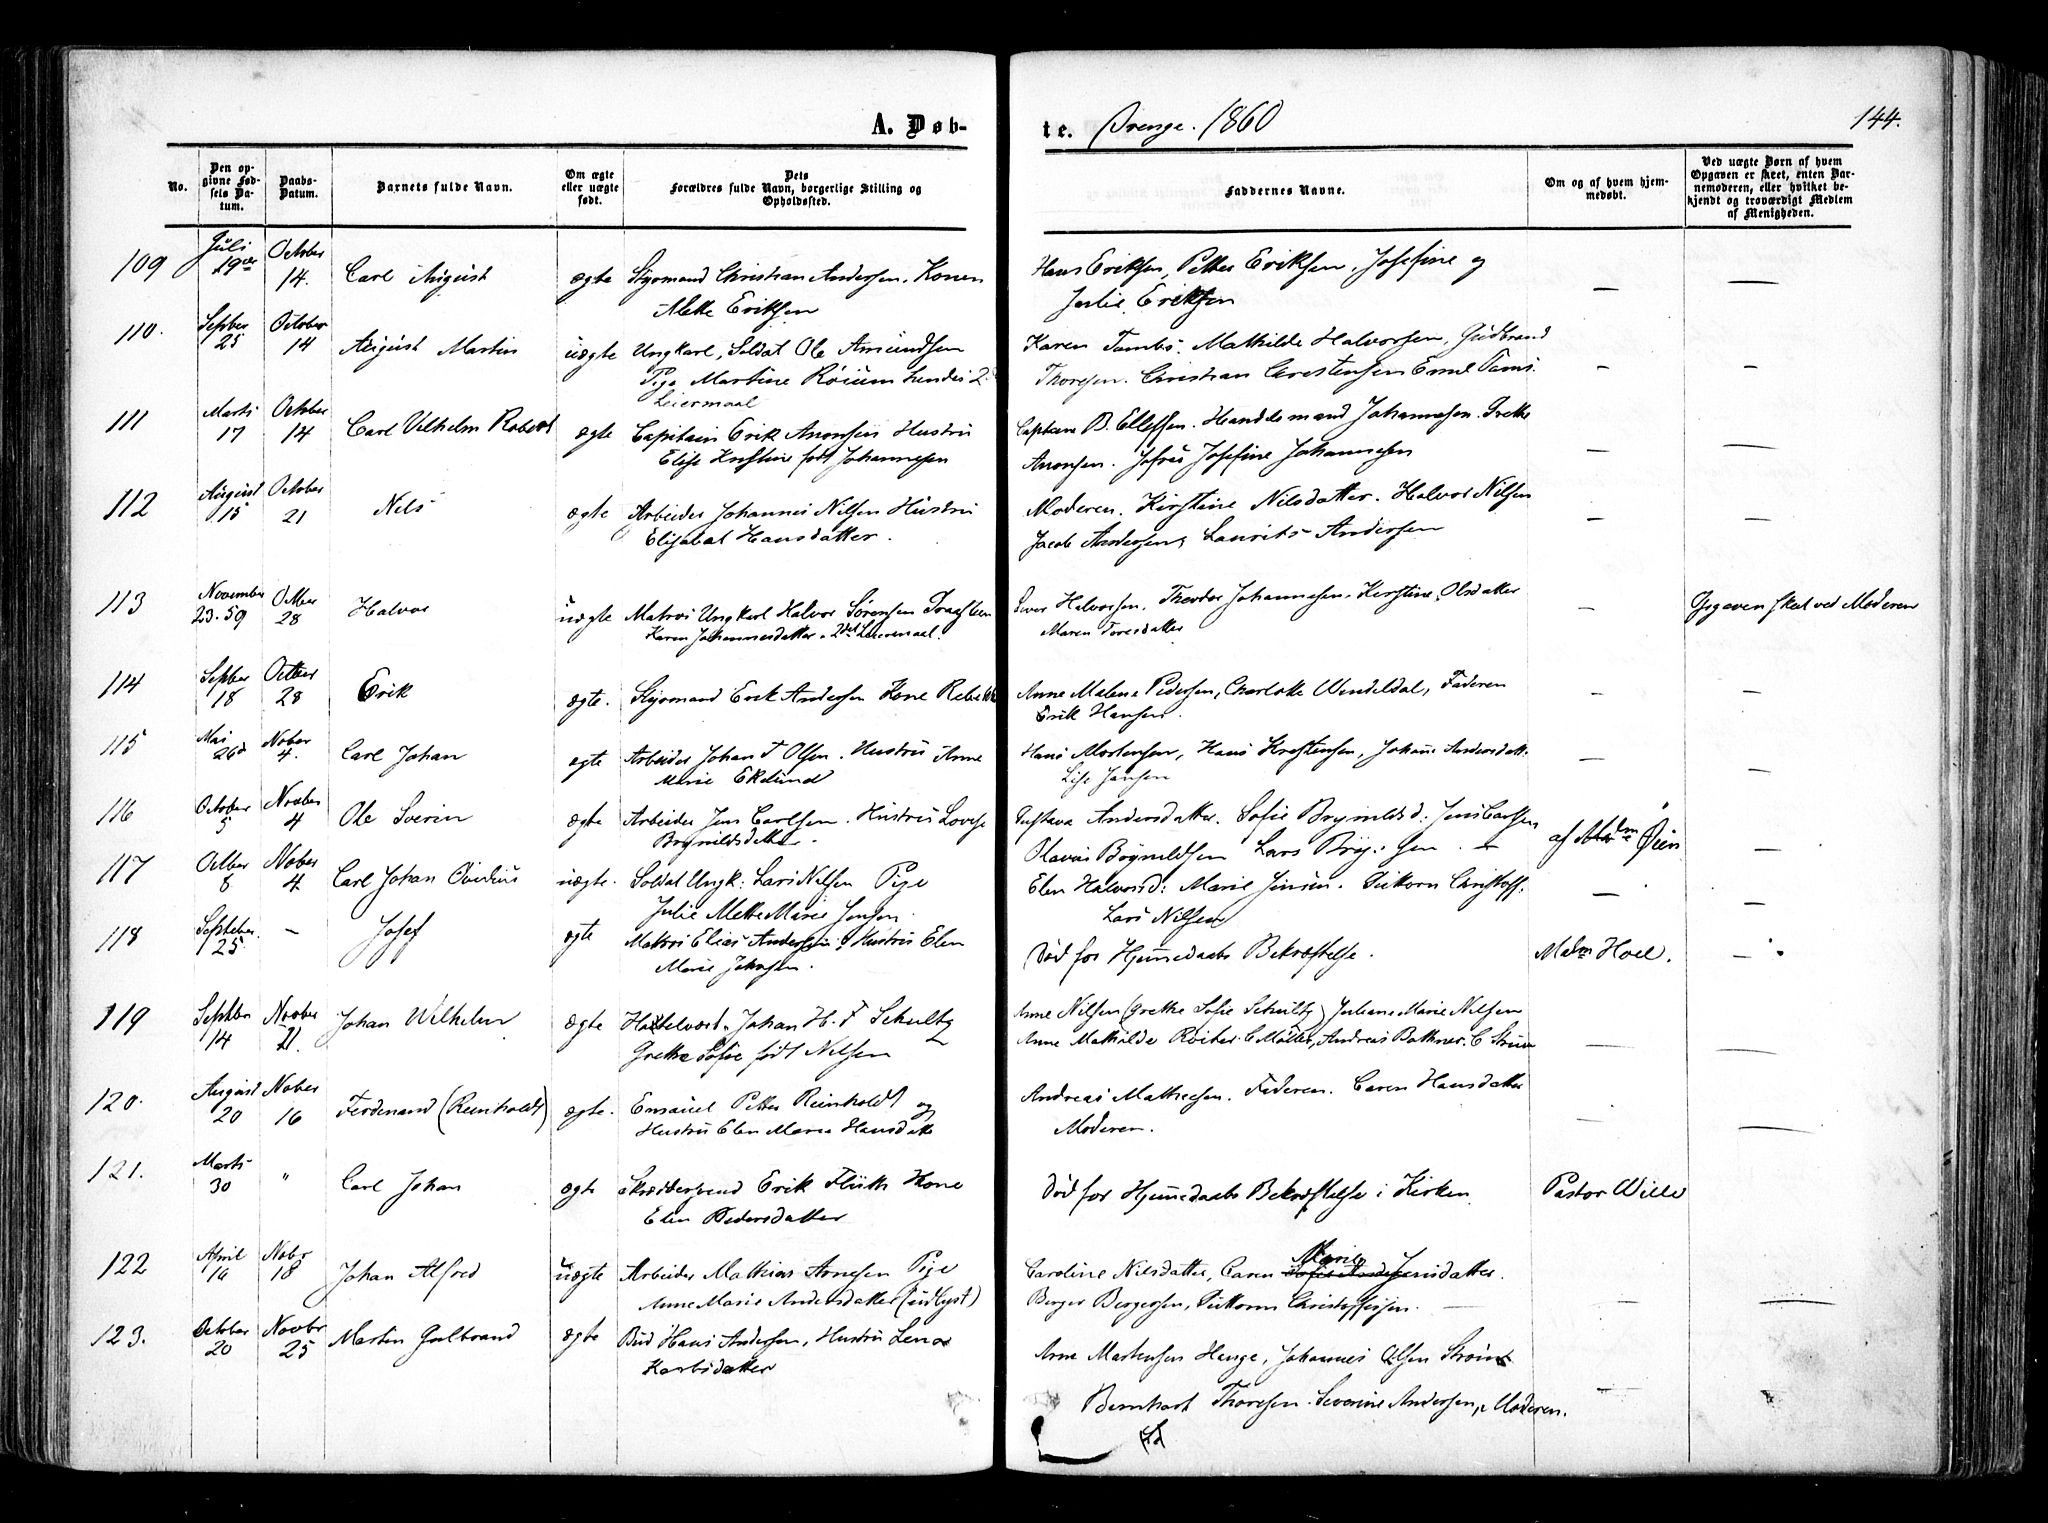 A. Døb-
te. Drenge. 1860
144.
No.
Den opgivne Fødsels Datum.
Daabs-Datum.
Barnets fulde Navn.
Om ægte eller uægte født.
Dets Forældres fulde Navn, borgerlige Stilling og Opholdssted.
Faddernes Navne.
Om og af hvem hjemmedøbt.
Ved uægte Børn af hvem Opgaven er skeet, enten Barnemoderen, eller hvilket bekjendt og troværdigt Medlem af Menigheden.
109 Juli 29 October 14. Carl August ægte Styrmand Christian Andersen. Konen
Mette Eriksen
Hans Eriksen, Petter Eriksen, Josefine og
Julie Eriksen — —
110. Septber 25 October 14 August Martin uægte Ungkarl, Soldat Ole Amundsen
Pige Martine Røium hendes 2
Leiermaal
Karen Tambs. Mathilde Halvorsen, Gudbrand
Thoresen. Christian Christensen Emil Tams. — —
111 Marts 17 October 14 Carl Vilhelm Robert ægte Capitain Erik Aronsen Hustru
Elise Kristine født Johannesen
Captain B. Ellefsen. Handelsmand Johannesen. Grethe
Aronsen. Jofru Josefine Johannesen — —
112 August 15 October 21 Nels ægte Arbeider Johannes Nilsen Hustru
Elisabet Hansdatter.
Moderen. Kirstine Nilsdatter. Halvor Nilsen
Jacob Andersen, Laurits Andersen — —
113 November 23. 59 Octber 28 Halvor uægte Matros Ungkarl Halvor Sørensen
Karen Johannesdatter. 2det Leiermaal.
Halvorsen. Theodor Johannesen. Kirstine Olsdatter
Maren Toresdatter — Opgaven skeet ved Moderen
114 Septber 18 Octber 28 Erik ægte. Styrmand Erik Andersen Kone
Anne Malene Pedersen, Charlotte Wendeldal, Faderen
Erik Hansen. — —
115 Mai 26 Nober 4. Carl Johan ægte Arbeider Johan T Olsen. Hustru Anne
Marie Eklund
Hans Mortensen, Hans Kristensen, Johanne Andersdatt.
Lise Jansen — —
116 October 5 Novber 4 Ole Sverin ægte Arbeider Jens Carlsen. Hustru Lovise
Brynildsdatter.
Gustava Andersdatter. Sofie Brynildsd: Jens Carlsen
Olavus Brynildsen Lars — af Mdm Øien —
117 Octber 8 Nober 4. Carl Johan uægte. Soldat Ungk: Lars Nilsen Pige
Julie Mette Marie Jensen.
Elen Halvorsd: Marie Jensen. Christoff.
Lars Nilsen — —
118 September 25. — Josef ægte Matros Elias Andersen. Hustru Elen
Marie Johnsen.
Død før Hjemmedaabs Bekræftelse. Madm Hoel. —
119 Septber 14 Novber 21. Johan Wilhelm ægte Johan H. F Schultz
Grethe Sofie født Nilsen
Anne Nilsen (Grethe Sofie Schultz) Juliane Marie Nilsen
Anne Mathilde C Møller, Andreas — —
120. August 20 Nober 16 Ferdenand (Reinholdt) ægte. Emanuel Petter Reinholdt og
Hustru Elen Maria Hansdatt
Andreas Mathiesen. Faderen. Caren Hansdatter
Moderen. — —
121. Marts 30 " Carl Johan ægte Skræddersvend Erik Kone
Elen Pedersdatter
Død før Hjemmedaabs Bekræftelse i Kirken Pastor Wille
122 April Nobr 18 Johan Alfred uægte Arbeider Mathias Arnesen Pige
Anne Marie Andersdatter (indlyst)
Caroline Nilsdatter, Caren Marie Jensdatter.
Berger Bergersen, Christoffersen. — — —
123. October 20 Novbr 25 Martin Gulbrand ægte Bud Hans Andersen, Hustru Lena
Anne Martensen Hauge, Johannes Olsen
Bernhart Thoresen. Severine Andersen, Moderen. —